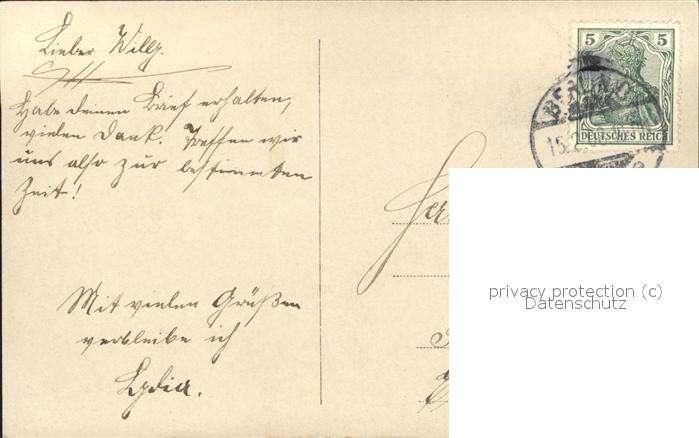 Lieber Willy.
Habe deinen Brief erhalten,
vielen Dank. Treffen wir
uns also zur bestimmten
Zeit!
Mit vielen Grüßen
verbleibe ich
Lydia.
5 5
DEUTSCHES REICH
BERLIN
15.2
privacy protection (c)
Datenschutz